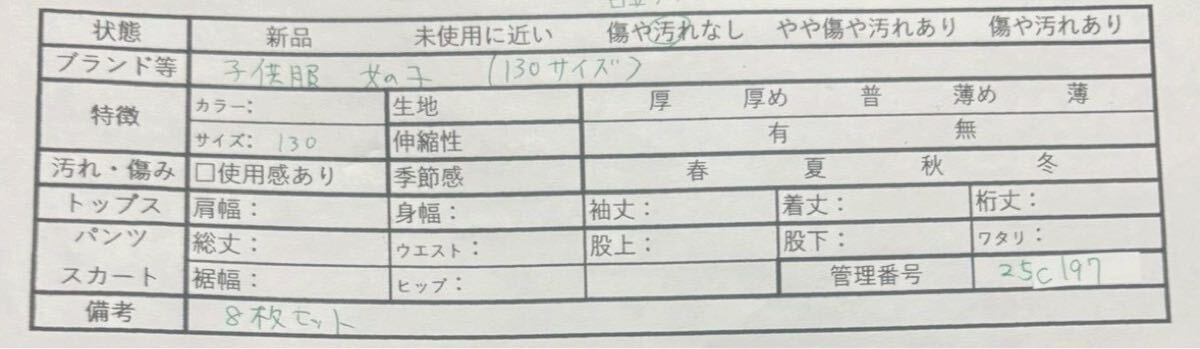 状態 新品 未使用に近い 傷や汚れなし やや傷や汚れあり 傷や汚れあり
ブランド等 子供服 女の子 (130サイズ)
特徴 カラー: 生地 厚 厚め 普 薄め 薄
サイズ: 130 伸縮性 有 無
汚れ・傷み □使用感あり 季節感 春 夏 秋 冬
トップス 肩幅: 身幅: 袖丈: 着丈: 桁丈:
パンツ 総丈: ウエスト: 股上: 股下: ワタリ:
スカート 裾幅: ヒップ: 管理番号 25C197
備考 8枚セット